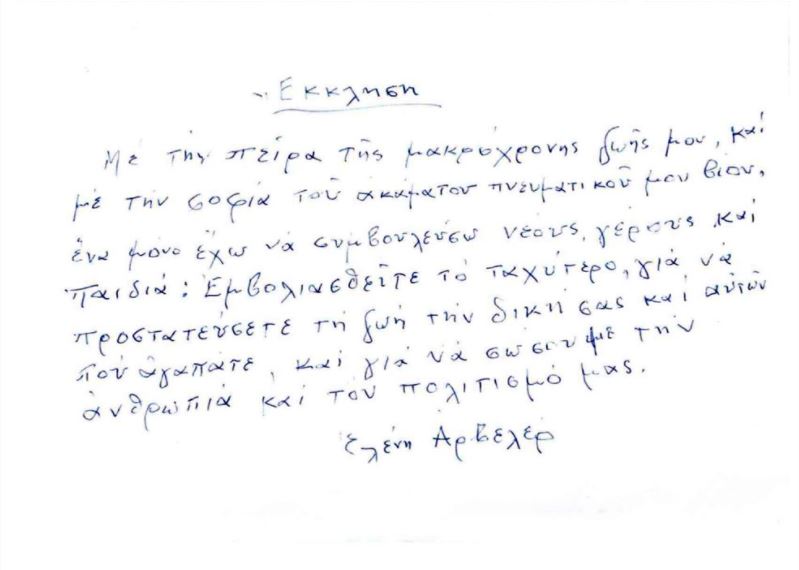 Εκκληση
Μέ τήν πείρα τῆς μακρόχρονης ζωῆς μου, καί
μέ τήν σοφία τοῦ ἀκάματου πνευματικοῦ μου βίου,
ἕνα μόνο ἔχω νά συμβουλεύσω νέους, γέρους καί
παιδιά: Ἐμβολιασθεῖτε τό ταχύτερο, γιά νά
προστατεύσετε τή ζωή τήν δική σας καί αὐτῶν
πού ἀγαπάτε, καί γιά νά σώσουμε τήν
ἀνθρωπιά καί τόν πολιτισμό μας.
Ἑλένη Ἀρβελέρ